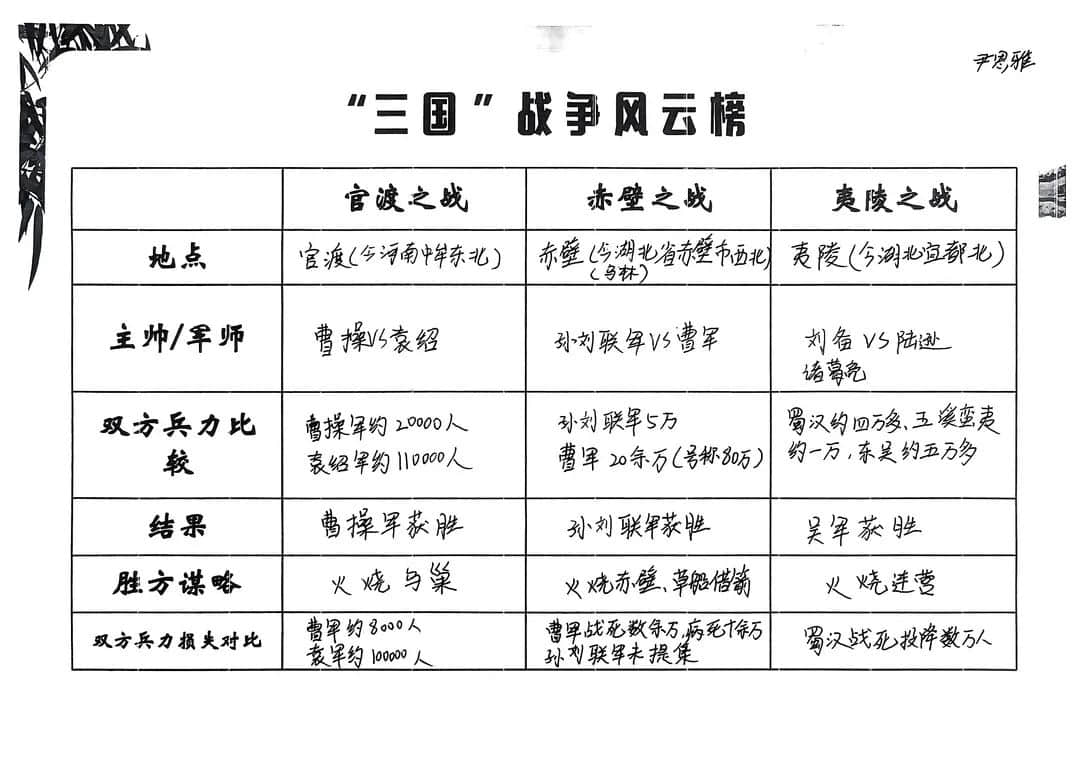 尹思雅
“三国”战争风云榜
官渡之战 赤壁之战 夷陵之战
地点 官渡(今河南中牟东北) 赤壁(今湖北省赤壁市西北) 夷陵(今湖北宜都北)
(乌林)
主帅/军师 曹操VS袁绍 孙刘联军VS曹军 刘备 VS 陆逊
诸葛亮
双方兵力比 曹操军约20000人 孙刘联军5万 蜀汉约四万多、五溪蛮夷
较 袁绍军约110000人 曹军20余万(号称80万) 约一万,东吴约五万多
结果 曹操军获胜 孙刘联军获胜 吴军获胜
胜方谋略 火烧乌巢 火烧赤壁、草船借箭 火烧连营
双方兵力损失对比 曹军约8000人 曹军战死数余万,病死十余万 蜀汉战死投降数万人
袁军约100000人 孙刘联军未提集